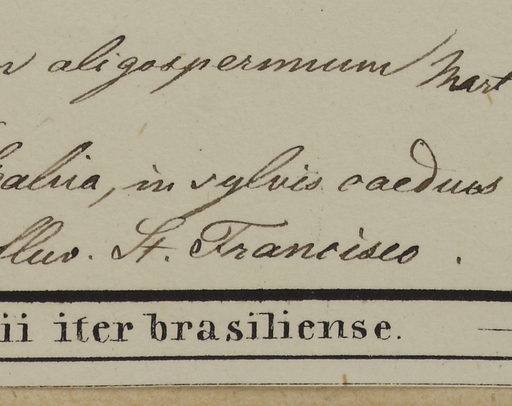 oligospermum Mart
in sylvis caeduis
fluv. St. Francisco.
ii iter brasiliense.